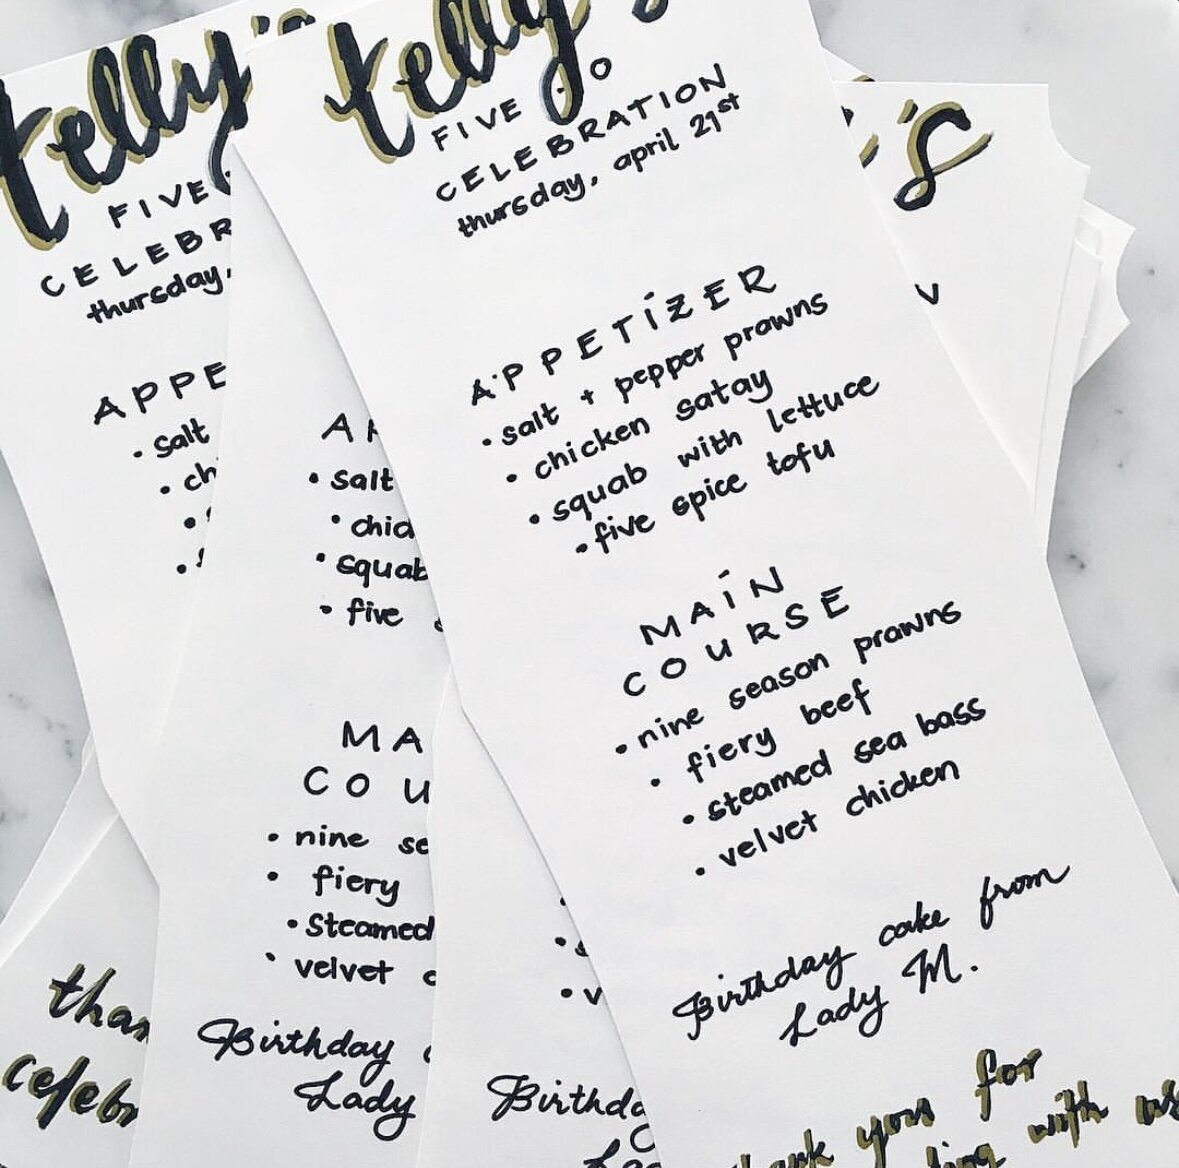 telly's
FIVE
CELEBR
thursday,
APPE
• salt
• ch
than
celebr
A
• salt
• chic
• squab
• five
MA
COU
• nine se
• fiery
• steamed
• velvet c
Birthday
Lady
• v
Birthda
telly's
FIVE O
CELEBRATION
thursday, april 21st
APPETIZER
• salt + pepper prawns
• chicken satay
• squab with lettuce
• five spice tofu
MAIN
COURSE
• nine season prawns
• fiery beef
• steamed sea bass
• velvet chicken
Birthday cake from
Lady M.
thank you for
ing with us
's